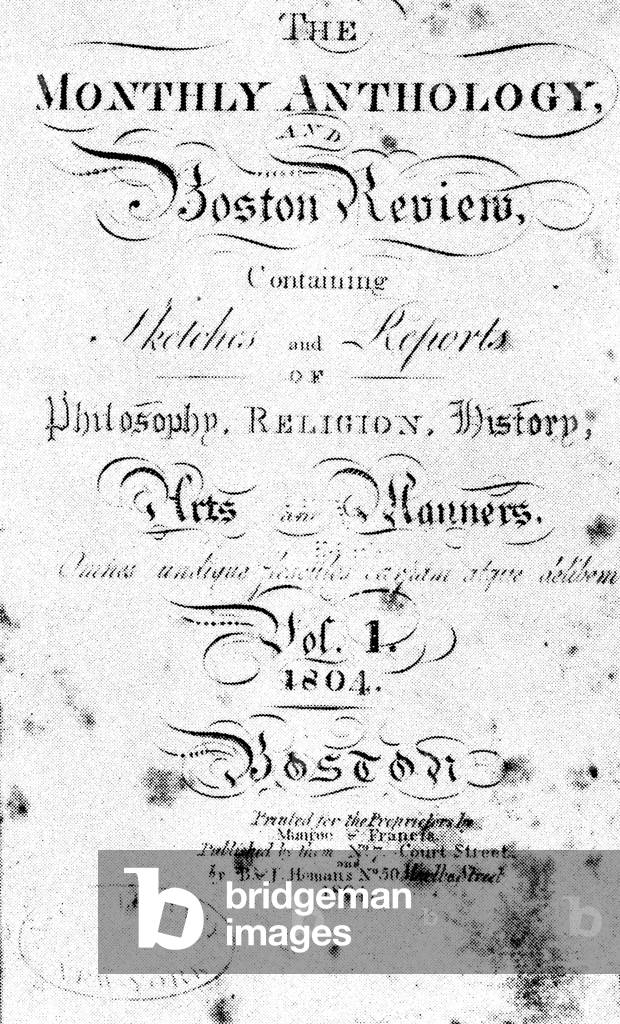 THE
MONTHLY ANTHOLOGY,
AND
Boston Review,
Containing
Sketches and Reports
OF
Philosophy, RELIGION, History,
Arts and Manners.
Omnes undique flosculos carpam atque delibem
Vol. 1.
1804.
BOSTON
Printed for the Proprietors by
Munroe & Francis
Published by them No. 7. Court Street.
and
by B & J. Homans No. 50 Street
bridgeman
images
NEW-YORK